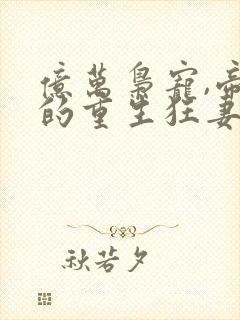 億萬梟寵,帝
的重生狂妻
秋若夕